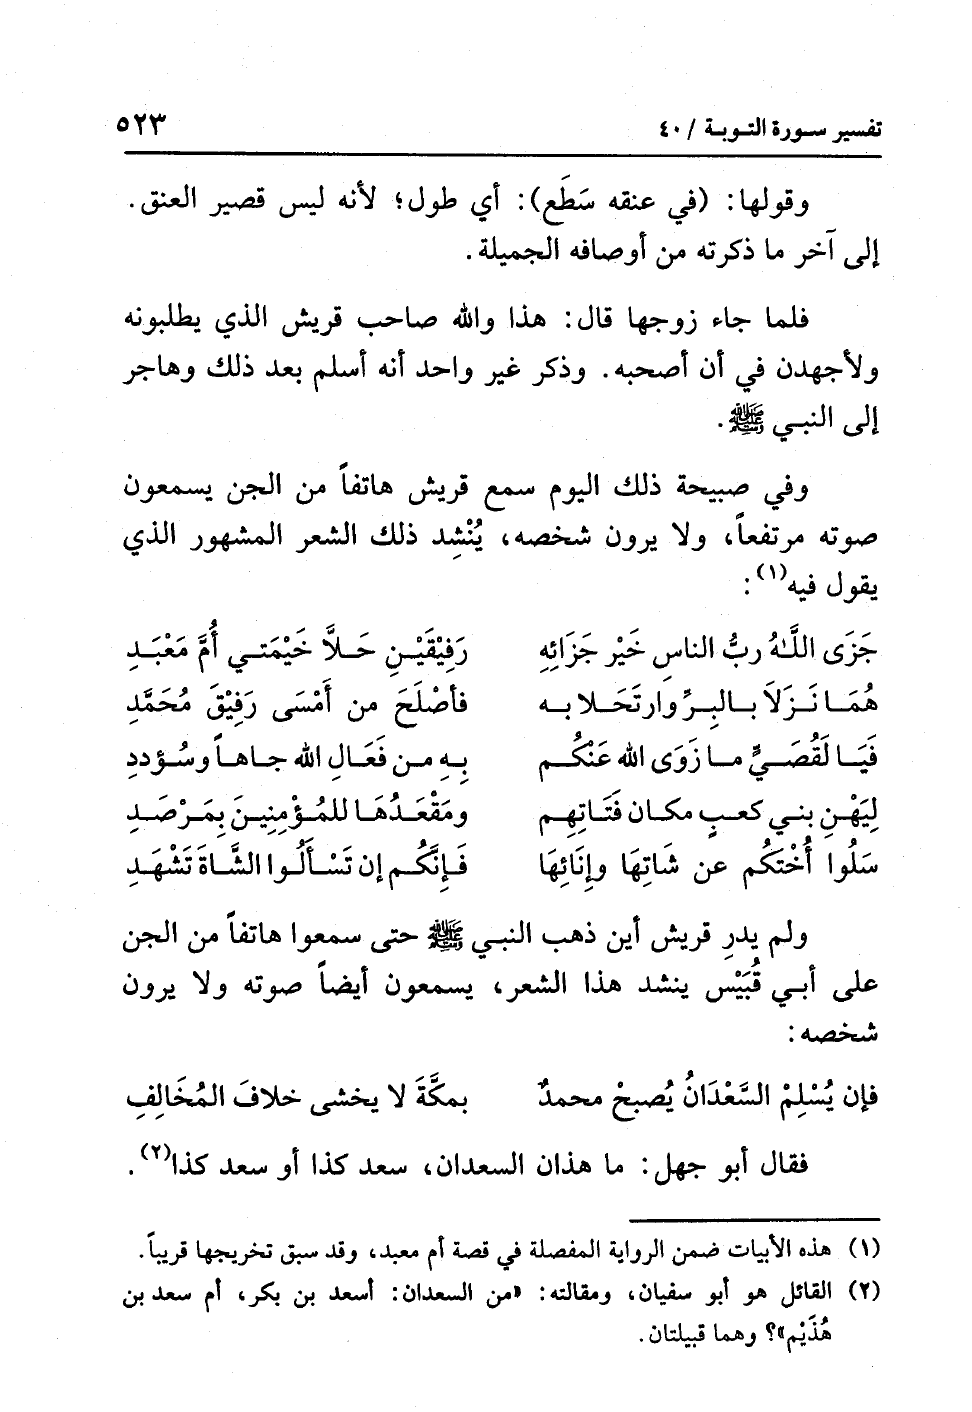 تفسير سورة التوبة / ٤٠ ٥٢٣
وقولها: (في عنقه سَطَع): أي طول؛ لأنه ليس قصير العنق.
إلى آخر ما ذكرته من أوصافه الجميلة.
فلما جاء زوجها قال: هذا والله صاحب قريش الذي يطلبونه
ولأجهدن في أن أصحبه. وذكر غير واحد أنه أسلم بعد ذلك وهاجر
إلى النبي ﷺ.
وفي صبيحة ذلك اليوم سمع قريش هاتفاً من الجن يسمعون
صوته مرتفعاً، ولا يرون شخصه، يُنْشِد ذلك الشعر المشهور الذي
يقول فيه(١):
جَزَى اللَّهُ ربُّ الناسِ خَيْر جَزَائِهِ رَفِيْقَيْنِ حَلاَّ خَيْمَتي أُمَّ مَعْبَدِ
هُمَا نَزَلاَ بالبِرِّ وارتَحَلا به فأصْلَحَ من أَمْسَى رَفِيْقَ مُحَمَّدِ
فَيَا لَقُصَيٍّ ما زَوَى الله عَنْكُم بِهِ من فَعَالِ الله جاهاً وسُؤددِ
لِيَهْنِ بني كعبٍ مكان فَتَاتِهِم ومَقْعَدُهَا للمُؤْمِنِينَ بِمَرْصَدِ
سَلُوا أُخْتكُم عن شَاتِهَا وإِنَائِهَا فَإِنَّكُم إن تَسْأَلُوا الشَّاةَ تَشْهَدِ
ولم يدرِ قريش أين ذهب النبي ﷺ حتى سمعوا هاتفاً من الجن
على أبي قُبَيْس ينشد هذا الشعر، يسمعون أيضاً صوته ولا يرون
شخصه:
فإن يُسْلِمْ السَّعْدَانُ يُصبحْ محمدٌ بمكَّةَ لا يخشى خلافَ المُخَالِفِ
فقال أبو جهل: ما هذان السعدان، سعد كذا أو سعد كذا(٢).
(١) هذه الأبيات ضمن الرواية المفصلة في قصة أم معبد، وقد سبق تخريجها قريباً.
(٢) القائل هو أبو سفيان، ومقالته: «من السعدان: أسعد بن بكر، أم سعد بن
هُذَيْم»؟ وهما قبيلتان.